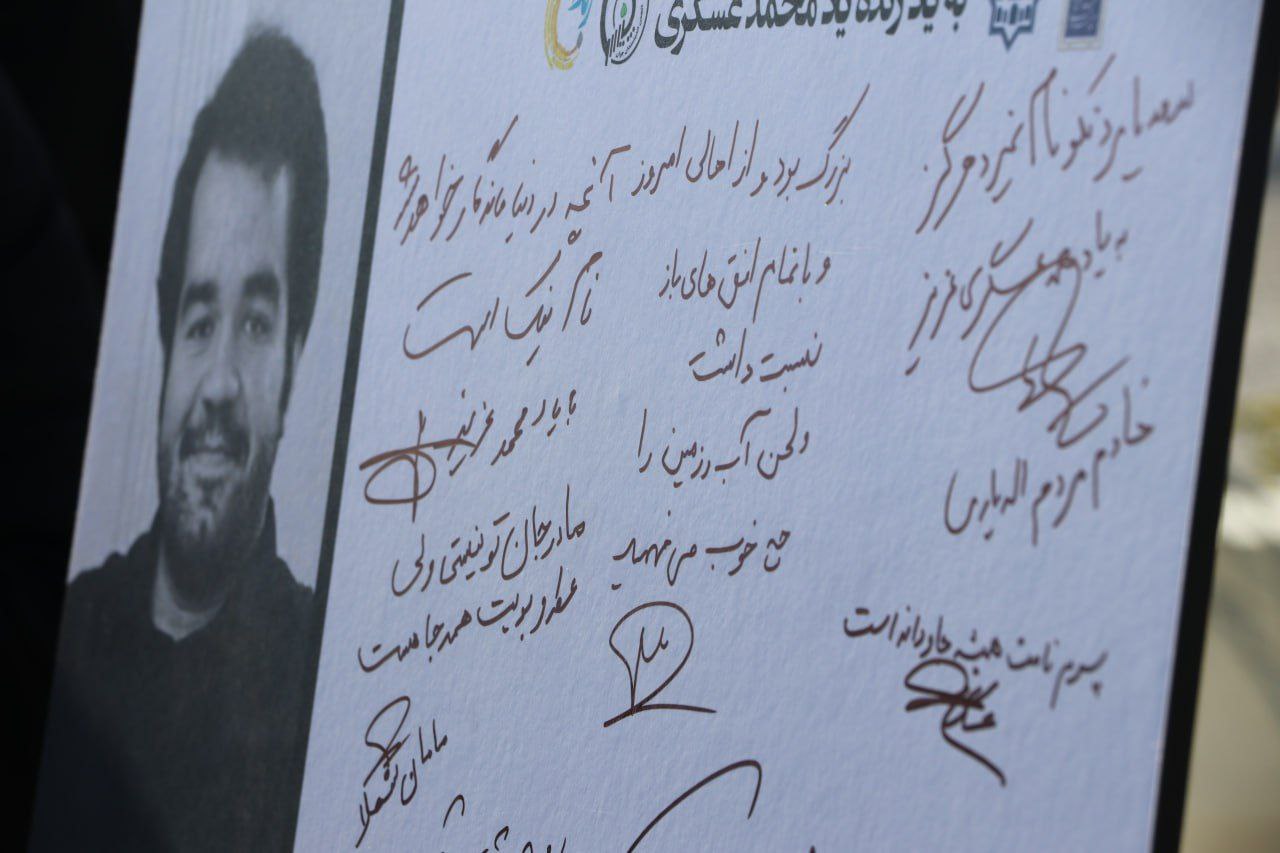 به یاد زنده یاد محمد عسکری
سعدیا مرد نکونام نمیرد هرگز
به یاد محمد عسکری عزیز
خادم مردم
بزرگ بود و از اهالی امروز
و با تمام افق های باز
نسبت داشت
ولحن آب و زمین را
چه خوب می فهمید
آنچه در دنیا ماندگار خواهد شد
نام نیک است
با یاد محمد عزیز
مادر جان تو نیستی ولی
عطر و بویت همه جا هست
مامان شهلا
پسرم نامت همیشه جاودانه است